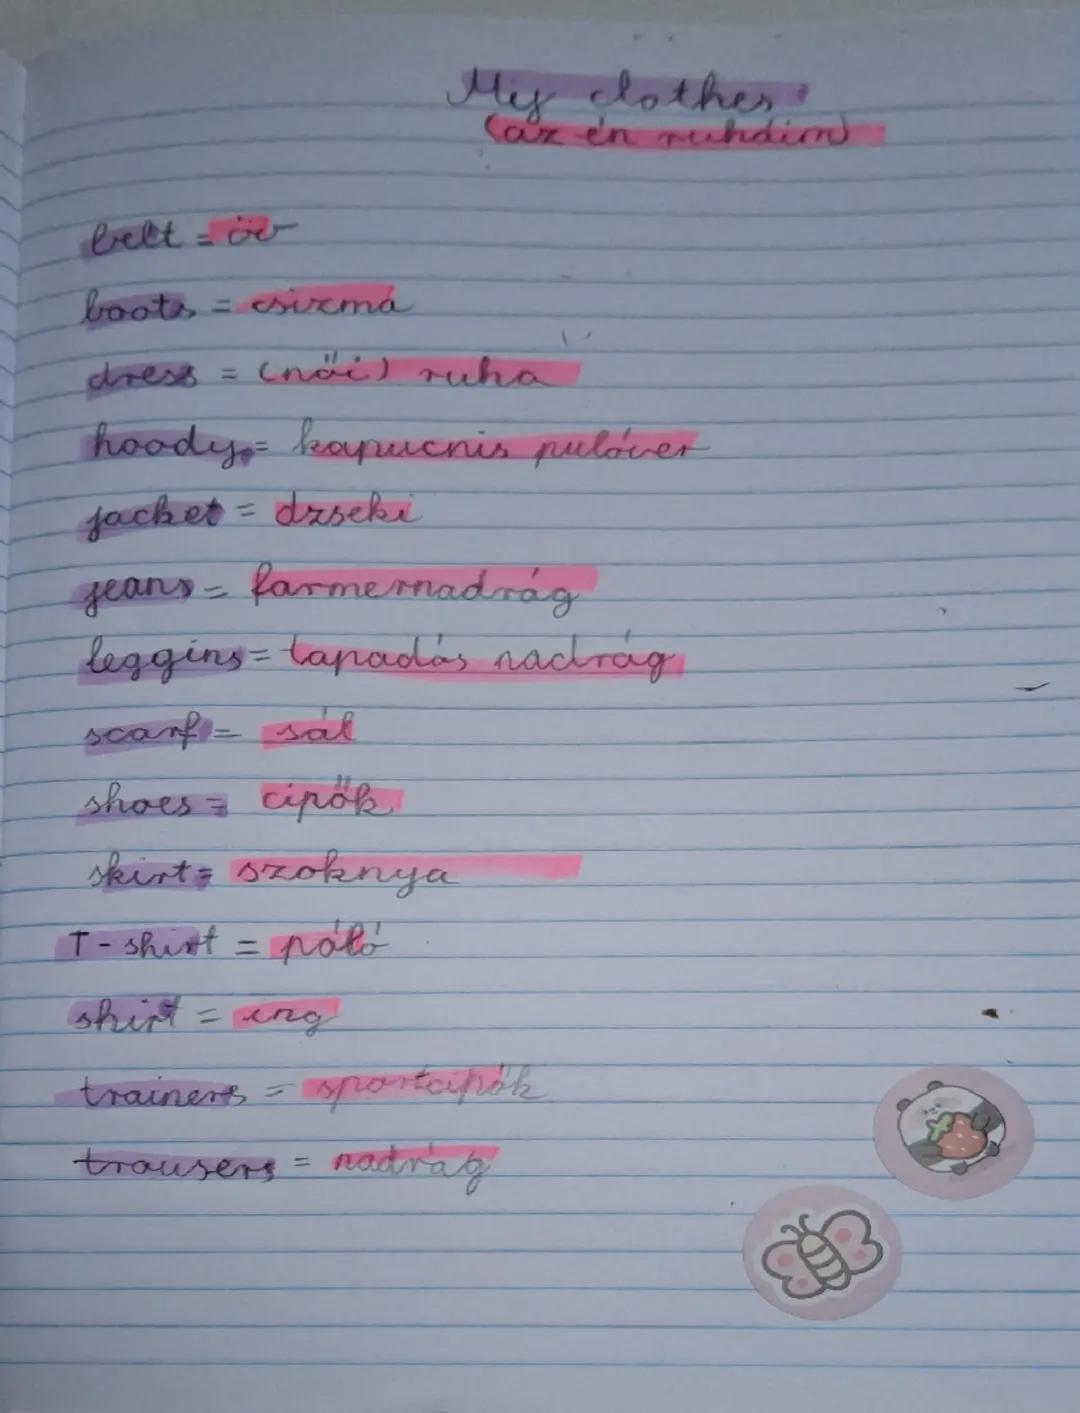 My clothes
(az én ruháim)
belt = öv
boots = csizma
dress = (női) ruha
hoody = kapucnis pulóver
jacket = dzseki
jeans = farmernadrág
leggins = tapadós nadrág
scarf = sál
shoes = cipők
skirt = szoknya
T-shirt = póló
shirt = ing
trainers = sportcipők
trousers = nadrág